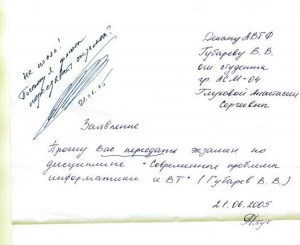 Не поняла!
Почему я должен
передавать экзамен?
21.06.05
Декану АВТФ
Губареву В. В.
от студента
гр. АСМ-04
Глуховой Анастасии
Сергеевны
Заявление
Прошу Вас передать экзамен по
дисциплине "Современные проблемы
информатики и ВТ" (Губарев В. В.)
21.06.2005